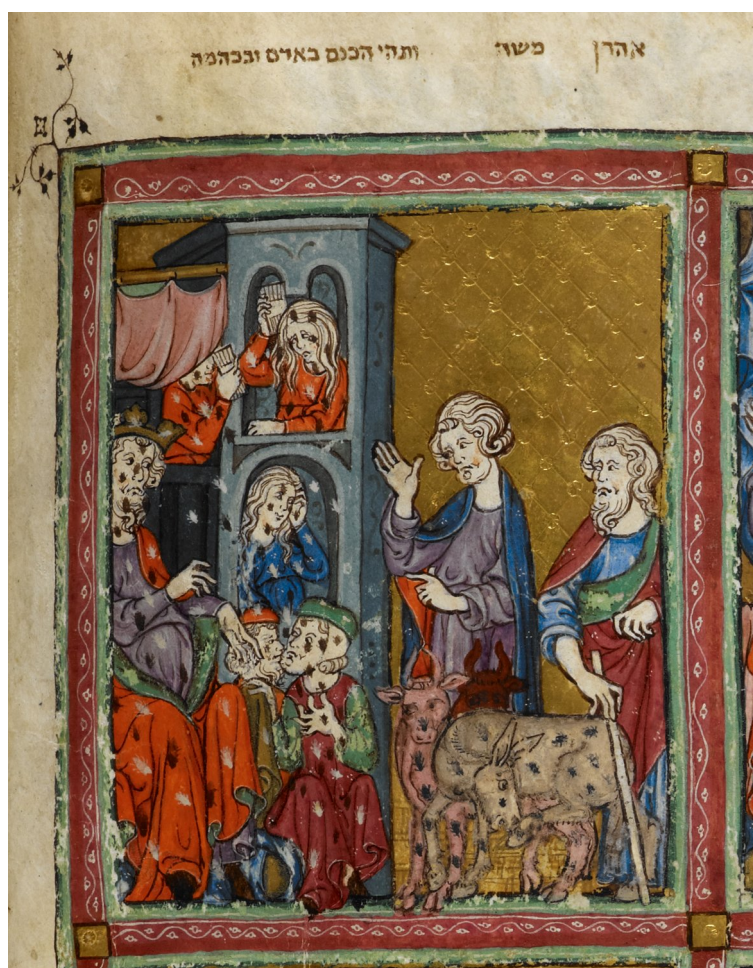 אהרן משה ותהי הכנם באדם ובבהמה